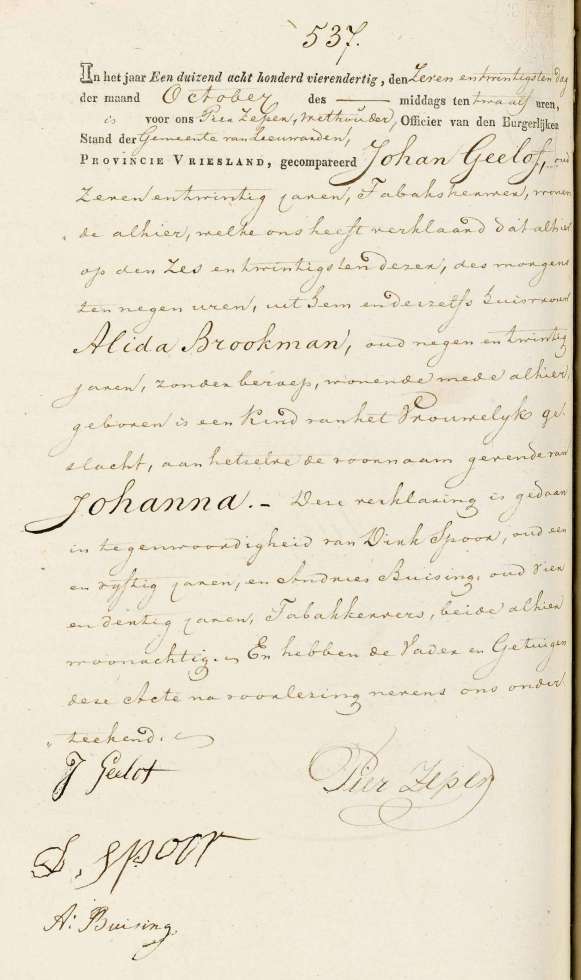 537.
In het jaar Een duizend acht honderd vierendertig, den Zeven entwintigsten dag
der maand October des — middags ten twaalf uren,
is voor ons Pier Zepen, Wethouder, Officier van den Burgerlijken
Stand der Gemeente van Leeuwarden,
PROVINCIE VRIESLAND, gecompareerd Johan Geelof, oud
Zeven entwintig jaren, Tabakskerver, wonen
„ de alhier, welke ons heeft verklaard dat alhier
op den Zes entwintigsten dezer, des morgens
ten negen uren, uit hem en deszelfs huisvrouw
Alida Brookman, oud negen entwintig
jaren, zonder beroep, wonende mede alhier,
geboren is een Kind van het Vrouwelyk ge-
slacht, aan hetselve de voornaam gevende van
Johanna. – Deze verklaring is gedaan
in tegenwoordigheid van Dirk Spoor, oud een
en vyftig jaren, en Andries Buising, oud Vier
en dertig jaren, Tabakkervers, beide alhier
woonachtig. En hebben de Vader en Getuigen
deze Acte na voorlezing nevens ons onder
„ teekend.
J Geelof
Pier Zepen
D, Spoor
A: Buising.